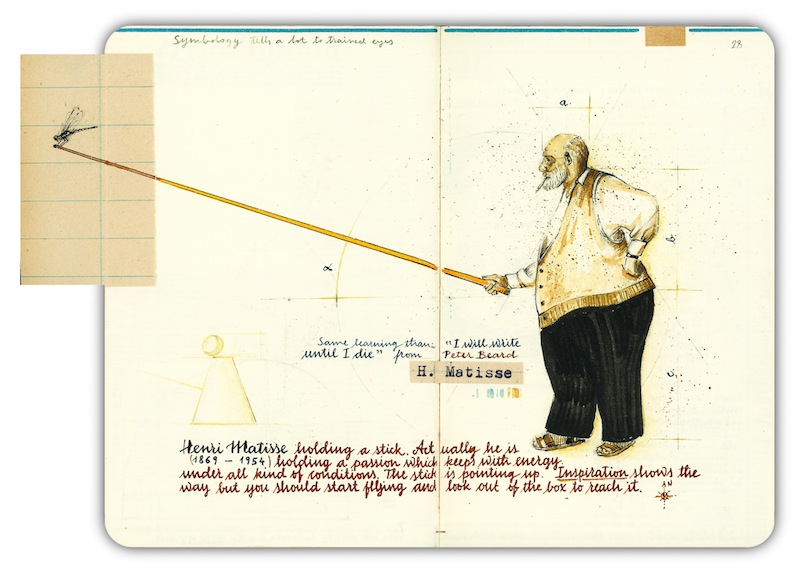 Symbology tells a lot to trained eyes
28
a.
b.
α
c.
Same learning than: "I will write
until I die" from Peter Beard
H. Matisse
Henri Matisse holding a stick. Actually he is
(1869 – 1954) holding a passion which keeps with energy
under all kind of conditions. The stick is pointing up. Inspiration shows the
way but you should start flying and look out of the box to reach it.
N